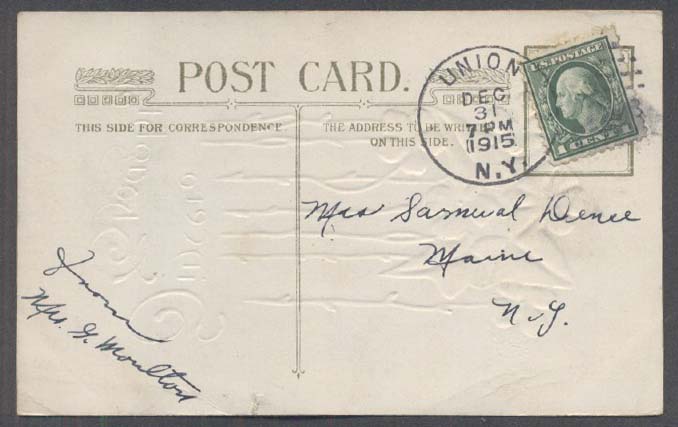 POST CARD.
THIS SIDE FOR CORRESPONDENCE.
THE ADDRESS TO BE WRITTEN
ON THIS SIDE.
UNION
DEC
31
7 PM
1915
N.Y.
U.S. POSTAGE
1 CENT 1
Maine
N.Y.
From
Mrs. G. Moulton